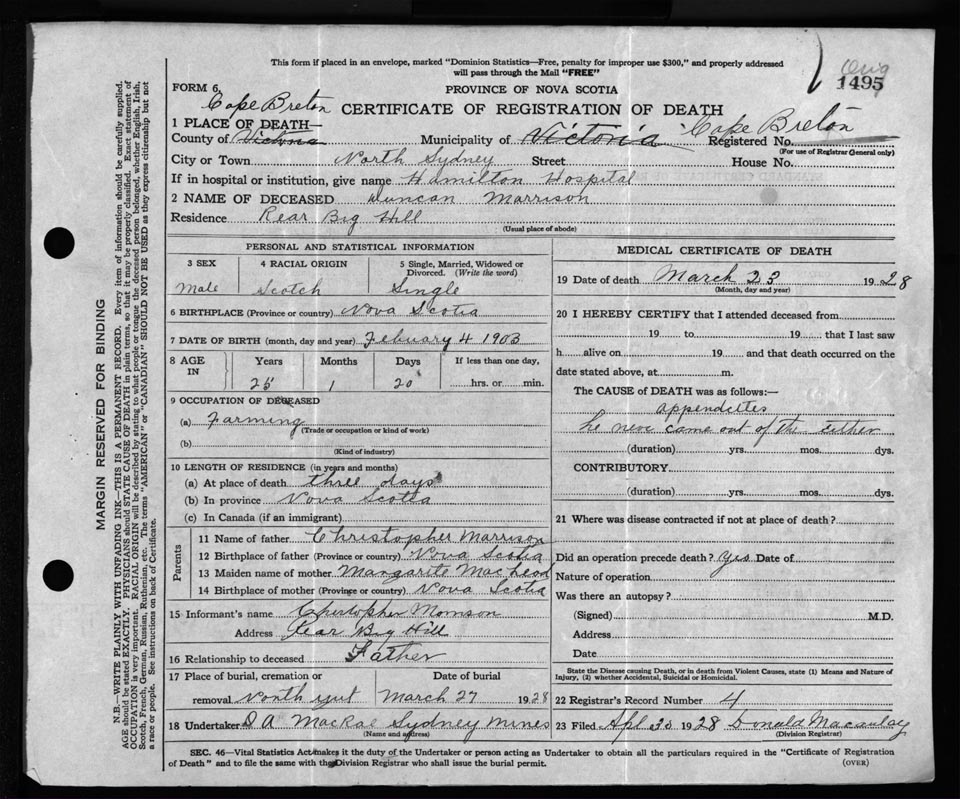 This form if placed in an envelope, marked "Dominion Statistics—Free, penalty for improper use $300," and properly addressed
will pass through the Mail "FREE"
Orig
1495
FORM 6.
PROVINCE OF NOVA SCOTIA
CERTIFICATE OF REGISTRATION OF DEATH
Cape Breton
1 PLACE OF DEATH—
Cape Breton
County of Victoria Municipality of Victoria Registered No.
(For use of Registrar General only)
City or Town North Sydney Street House No.
If in hospital or institution, give name Hamilton Hospital
2 NAME OF DECEASED Duncan Marrison
Residence Rear Big Hill
(Usual place of abode)
PERSONAL AND STATISTICAL INFORMATION
3 SEX 4 RACIAL ORIGIN 5 Single, Married, Widowed or
Divorced. (Write the word)
Male Scotch Single
6 BIRTHPLACE (Province or country) Nova Scotia
7 DATE OF BIRTH (month, day and year) Febuary 4 1903
8 AGE IN Years Months Days If less than one day,
25 1 20 hrs. or min.
9 OCCUPATION OF DECEASED
(a) Farming
(Trade or occupation or kind of work)
(b)
(Kind of industry)
10 LENGTH OF RESIDENCE (in years and months)
(a) At place of death three days
(b) In province Nova Scotia
(c) In Canada (if an immigrant)
Parents
11 Name of father Christopher Marrison
12 Birthplace of father (Province or country) Nova Scotia
13 Maiden name of mother Margarite MacLeod
14 Birthplace of mother (Province or country) Nova Scotia
15 Informant's name Christopher Morrison
Address Rear Big Hill
16 Relationship to deceased Father
17 Place of burial, cremation or Date of burial
removal North March 27 1928
18 Undertaker D A MacRae Sydney Mines
(Name and address)
MEDICAL CERTIFICATE OF DEATH
19 Date of death March 23 1928
(Month, day and year)
20 I HEREBY CERTIFY that I attended deceased from
19 to 19 that I last saw
h alive on 19 and that death occurred on the
date stated above, at m.
The CAUSE of DEATH was as follows:—
appendettes
he neve came out of the either
(duration) yrs. mos. dys.
CONTRIBUTORY
(duration) yrs. mos. dys.
21 Where was disease contracted if not at place of death?
Did an operation precede death? yes Date of
Nature of operation
Was there an autopsy?
(Signed) M.D.
Address
Date
State the Disease causing Death, or in death from Violent Causes, state (1) Means and Nature of
Injury, (2) whether Accidental, Suicidal or Homicidal.
22 Registrar's Record Number 4
23 Filed Apl 30 1928 Donald Macaulay
(Division Registrar)
SEC. 46—Vital Statistics Act makes it the duty of the Undertaker or person acting as Undertaker to obtain all the particulars required in the "Certificate of Registration
of Death" and to file the same with the Division Registrar who shall issue the burial permit.
(OVER)
MARGIN RESERVED FOR BINDING
N.B.—WRITE PLAINLY WITH UNFADING INK—THIS IS A PERMANENT RECORD. Every item of information should be carefully supplied.
AGE should be stated EXACTLY. PHYSICIANS should STATE CAUSE OF DEATH in plain terms, so that it may be properly classified. Exact statement of
OCCUPATION is very important. RACIAL ORIGIN will be described by stating to what people or tongue the deceased person belonged, whether English, Irish,
Scotch, French, German, Russian, Ruthenian, etc. The terms "AMERICAN" or "CANADIAN" SHOULD NOT BE USED as they express citizenship but not
a race or people. See instructions on back of Certificate.